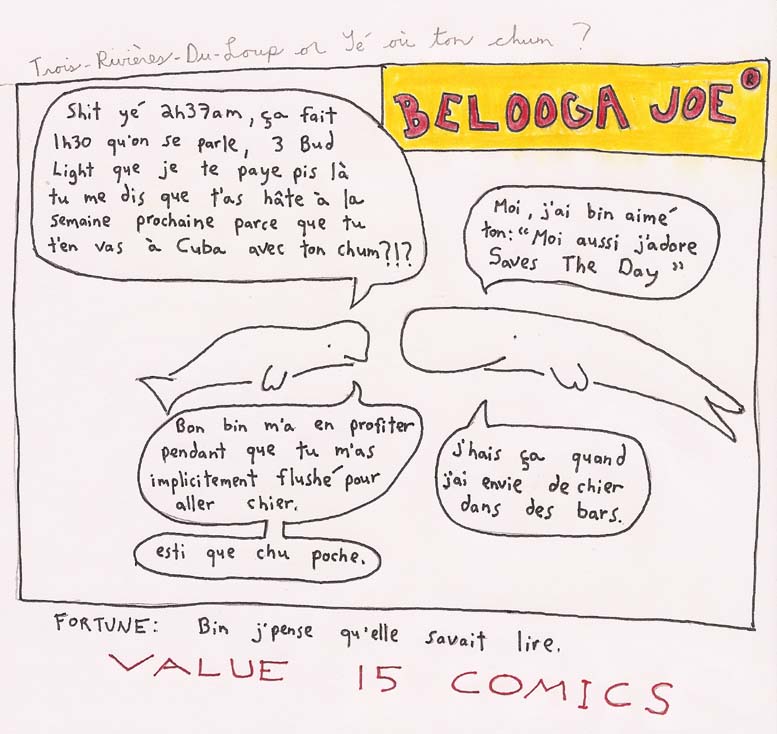 Trois-Rivières-Du-Loup or Yé où ton chum ?
BELOOGA JOE ®
Shit yé 2h37am, ça fait
1h30 qu'on se parle, 3 Bud
Light que je te paye pis là
tu me dis que t'as hâte à la
semaine prochaine parce que tu
t'en vas à Cuba avec ton chum?!?
Moi, j'ai bin aimé
ton: "Moi aussi j'adore
Saves The Day"
Bon bin m'a en profiter
pendant que tu m'as
implicitement flushé pour
aller chier.
esti que chu poche.
j'hais ça quand
j'ai envie de chier
dans des bars.
FORTUNE: Bin j'pense qu'elle savait lire.
VALUE 15 COMICS